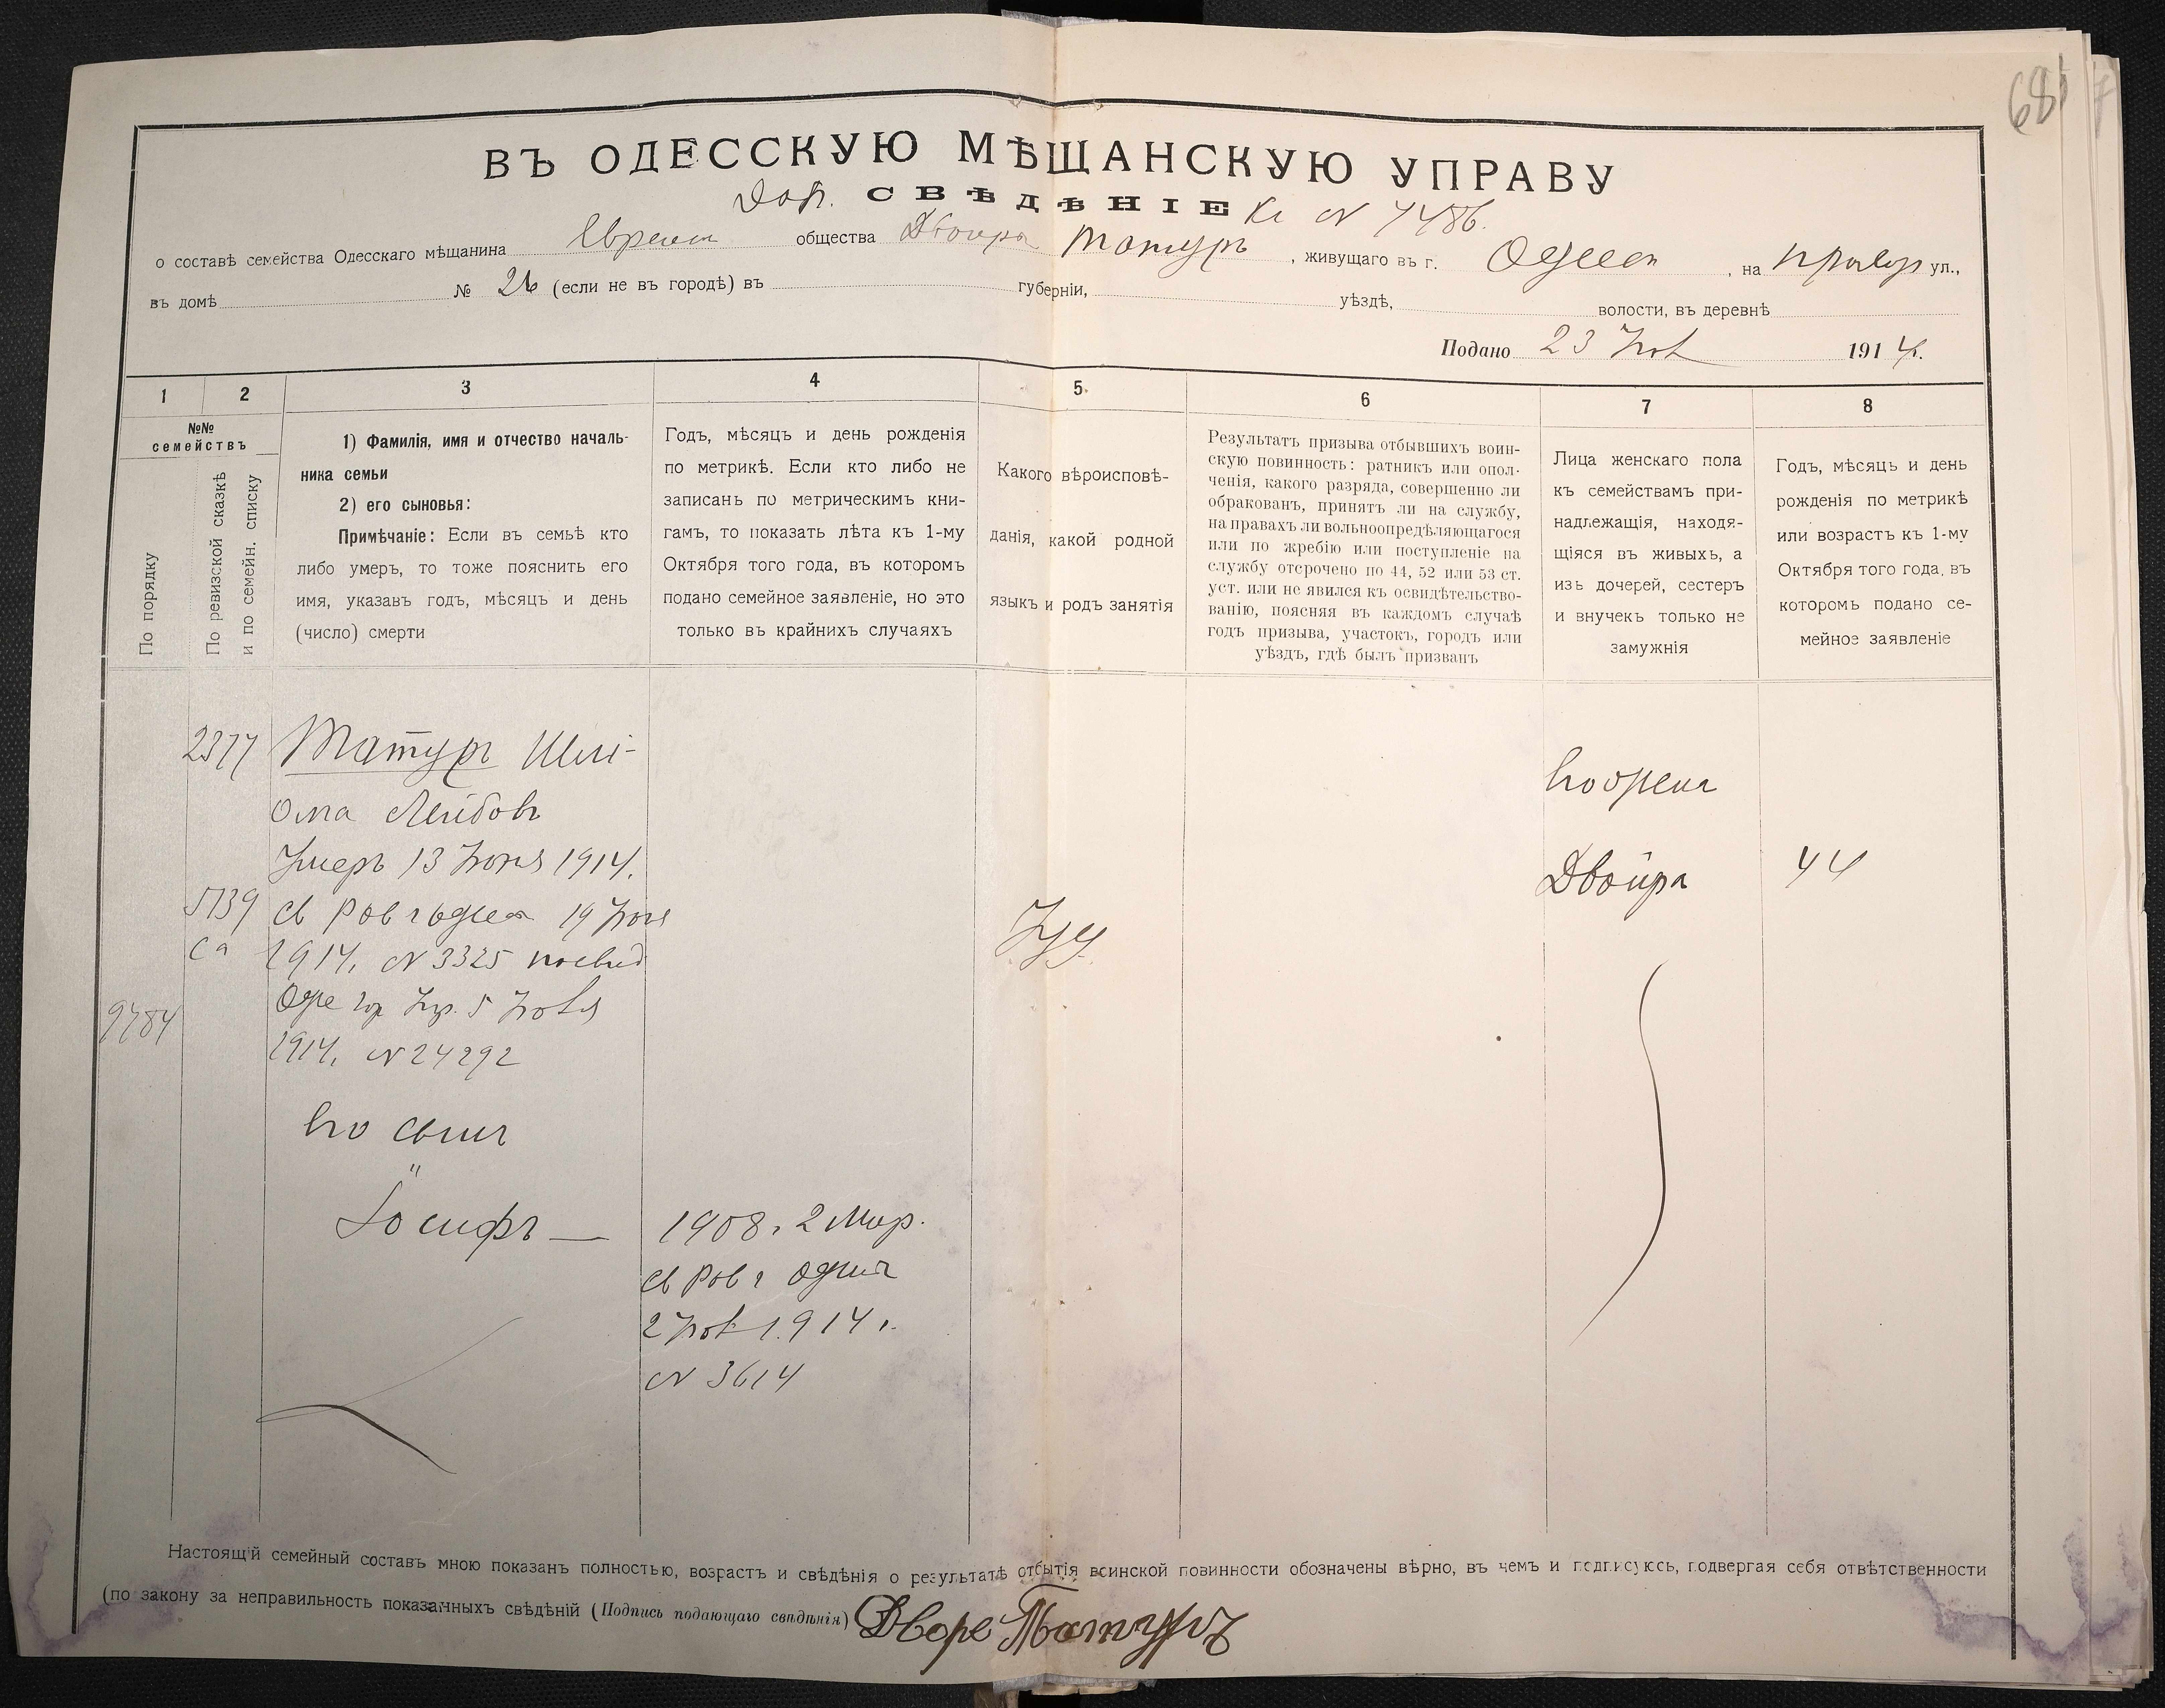 681
ВЪ ОДЕССКУЮ МѢЩАНСКУЮ УПРАВУ
Доп. СВѢДѢНІЕ Къ № 7486.
о составѣ семейства Одесскаго мѣщанина Евреил общества Двойра Татуръ, живущаго въ г. Одессѣ, на Прохор ул.,
въ домѣ № 26 (если не въ городѣ) въ губерніи, уѣздѣ, волости, въ деревнѣ
Подано 23 Іюл 1914г.
1 2 3 4 5 6 7 8
№№ семействъ
По порядку
По ревизской сказкѣ
и по семейн. списку
1) Фамилія, имя и отчество началь-
ника семьи
2) его сыновья:
Примѣчаніе: Если въ семьѣ кто
либо умеръ, то тоже пояснить его
имя, указавъ годъ, мѣсяцъ и день
(число) смерти
Годъ, мѣсяцъ и день рожденія
по метрикѣ. Если кто либо не
записанъ по метрическимъ кни-
гамъ, то показать лѣта къ 1-му
Октября того года, въ которомъ
подано семейное заявленіе, но это
только въ крайнихъ случаяхъ
Какого вѣроисповѣ-
данія, какой родной
языкъ и родъ занятія
Результатъ призыва отбывшихъ воин-
скую повинность: ратникъ или опол-
ченія, какого разряда, совершенно ли
обракованъ, принятъ ли на службу,
на правахъ ли вольноопредѣляющагося
или по жребію или поступленіе на
службу отсрочено по 44, 52 или 53 ст.
уст. или не явился къ освидѣтельство-
ванію, поясняя въ каждомъ случаѣ
годъ призыва, участокъ, городъ или
уѣздъ, гдѣ былъ призванъ
Лица женскаго пола
къ семействамъ при-
надлежащія, находя-
щіяся въ живыхъ, а
изъ дочерей, сестеръ
и внучекъ только не
замужнія
Годъ, мѣсяцъ и день
рожденія по метрикѣ
или возрастъ къ 1-му
Октября того года, въ
которомъ подано се-
мейное заявленіе
2377 Татуръ Шлі-
ома Лейбовъ
Умеръ 13 Іюня 1914.
5739 св Рав г Одессы 19 Іюня
са 1914. № 3325
9784 Іюля
1914. № 24292
Его сынъ
Іосифъ — 1908. 2 Мар.
св Рав г Одессы
2 Іюл 1914 г.
№ 3614
Іуд
Его жена
Двойра 44
Настоящій семейный составъ мною показанъ полностью, возрастъ и свѣдѣнія о результатѣ отбытія воинской повинности обозначены вѣрно, въ чемъ и подписуюсь, подвергая себя отвѣтственности
(по закону за неправильность показанныхъ свѣдѣній (Подпись подающаго свѣдѣнія) Дворе Татуръ